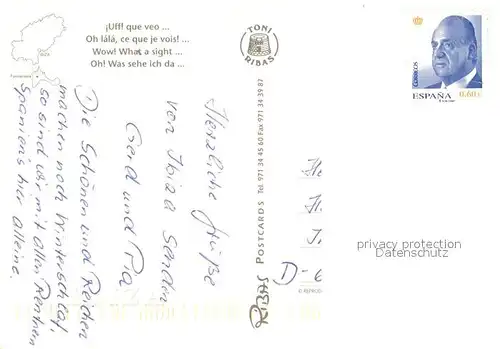 ¡Uff! que veo ...
Oh lálá, ce que je vois! ...
Wow! What a sight ...
Oh! Was sehe ich da ...
TONI
RIBAS
CORREOS
ESPAÑA
0,60€
Herzliche Grüße
von Ibiza senden
Gerd und
Die Schönen und Reichen
machen noch Winterschlaf,
so sind wir mit allen Rentnern
Spaniens hier alleine.
RIBAS POSTCARDS Tel. 971 34 45 60 Fax 971 34 39 87
D-
privacy protection
Datenschutz